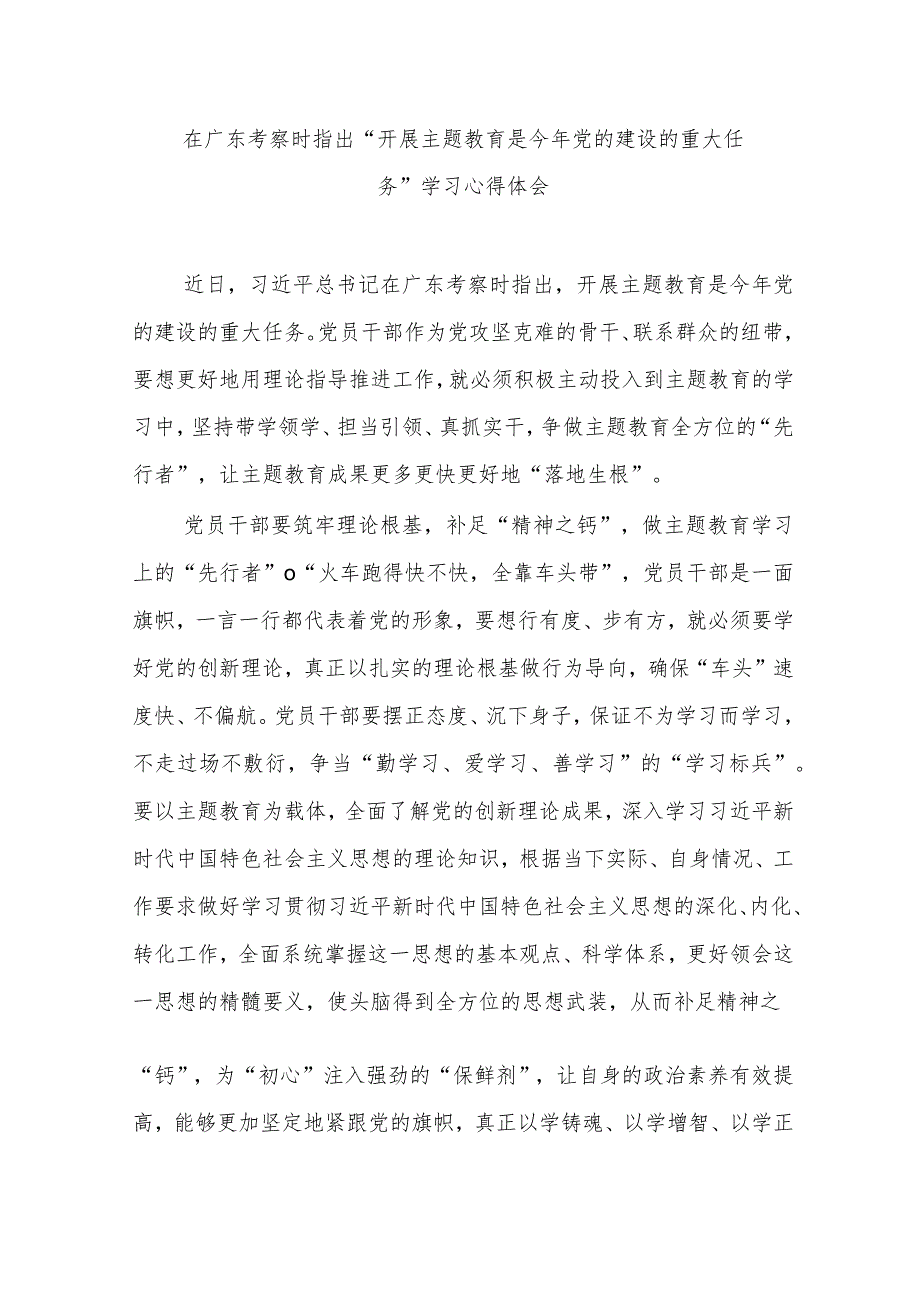 在广东考察时指出“开展主题教育是今年党的建设的重大任
务”学习心得体会
近日，习近平总书记在广东考察时指出，开展主题教育是今年党
的建设的重大任务。党员干部作为党攻坚克难的骨干、联系群众的纽带，
要想更好地用理论指导推进工作，就必须积极主动投入到主题教育的学
习中，坚持带学领学、担当引领、真抓实干，争做主题教育全方位的“先
行者”，让主题教育成果更多更快更好地“落地生根”。
党员干部要筑牢理论根基，补足“精神之钙”，做主题教育学习
上的“先行者”o“火车跑得快不快，全靠车头带”，党员干部是一面
旗帜，一言一行都代表着党的形象，要想行有度、步有方，就必须要学
好党的创新理论，真正以扎实的理论根基做行为导向，确保“车头”速
度快、不偏航。党员干部要摆正态度、沉下身子，保证不为学习而学习，
不走过场不敷衍，争当“勤学习、爱学习、善学习”的“学习标兵”。
要以主题教育为载体，全面了解党的创新理论成果，深入学习习近平新
时代中国特色社会主义思想的理论知识，根据当下实际、自身情况、工
作要求做好学习贯彻习近平新时代中国特色社会主义思想的深化、内化、
转化工作，全面系统掌握这一思想的基本观点、科学体系，更好领会这
一思想的精髓要义，使头脑得到全方位的思想武装，从而补足精神之
“钙”，为“初心”注入强劲的“保鲜剂”，让自身的政治素养有效提
高，能够更加坚定地紧跟党的旗帜，真正以学铸魂、以学增智、以学正